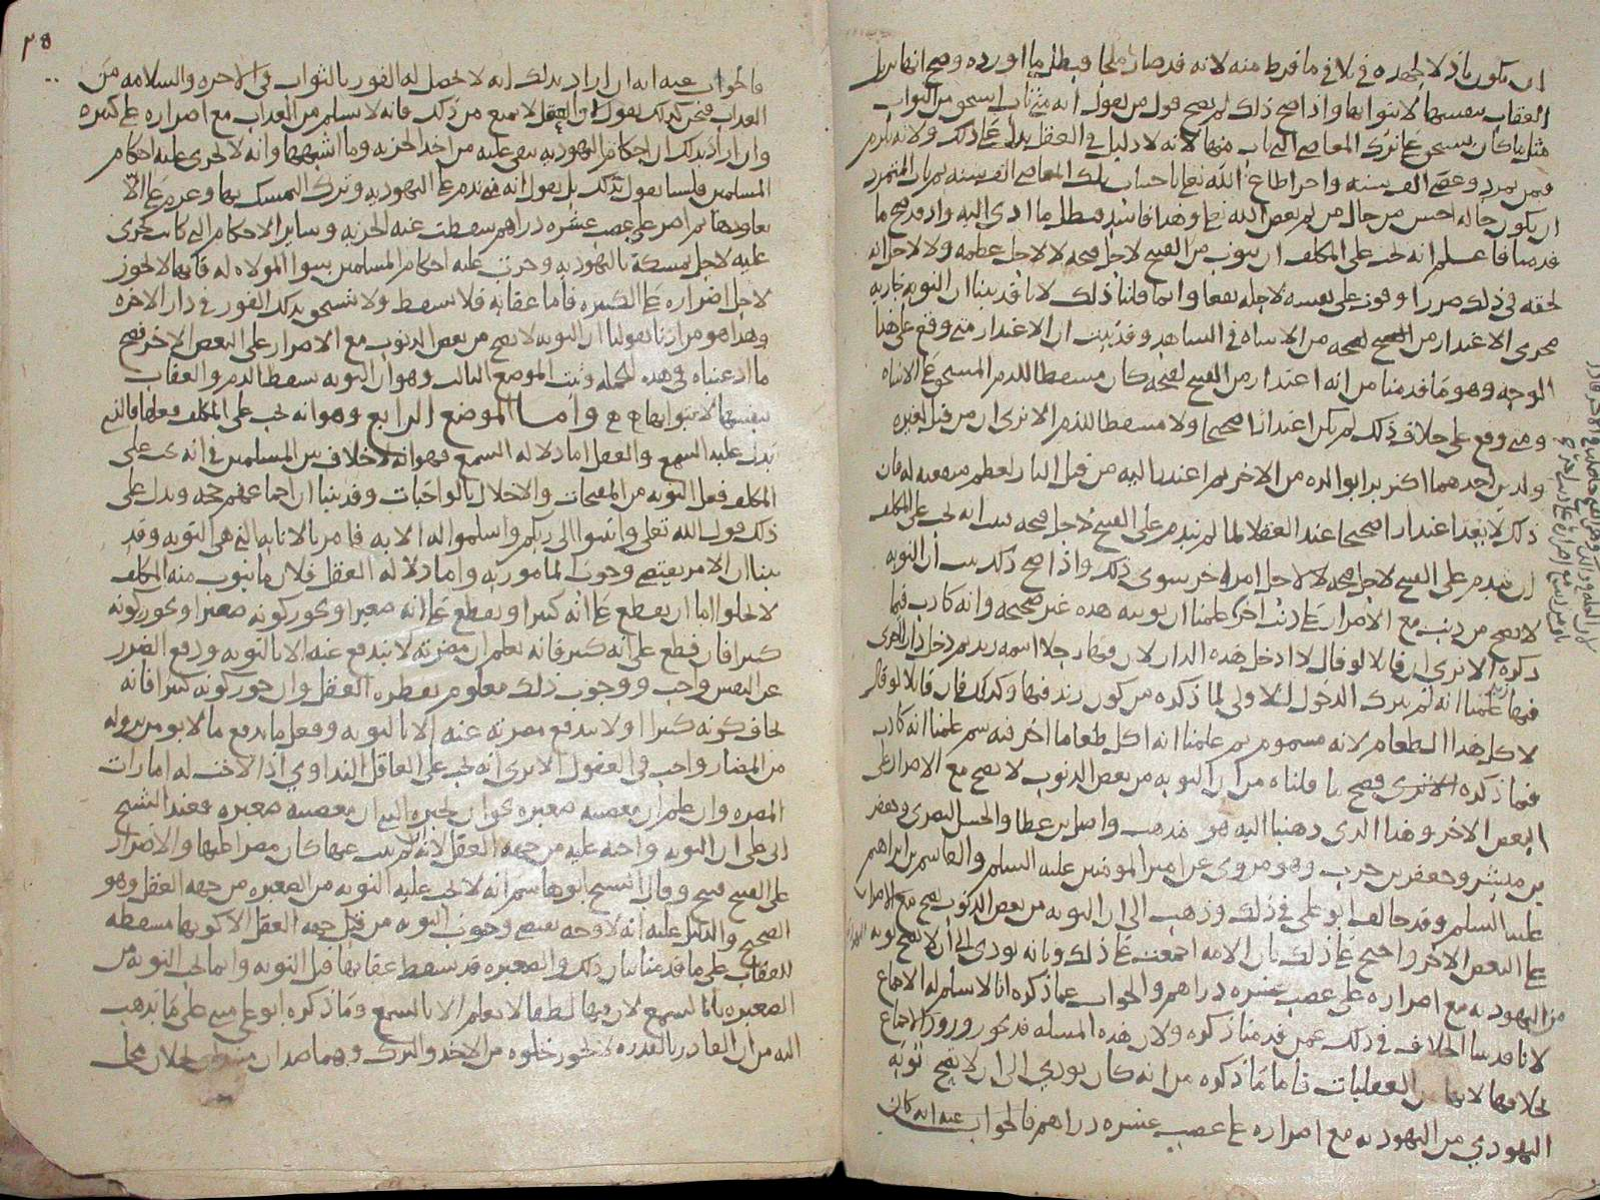 ان يكون باذلا لجهده في تلافي ما فرط منه لانه قد صار ملجا فبطل ما اورده وصح انها تزيل
العقاب بنفسها لا بثوابها واذا صح ذلك لم يصح قول من يقول انه متى تاب استحق من الثواب
مثل ما كان يستحق على ترك المعاصي التي تاب منها لانه لا دليل في العقل يدل على ذلك ولانه يلزم
فيمن تمرد وعصى الف سنه واخر اطاع الله تعالى باجتناب تلك المعاصي الف سنه ثم تاب المتمرد
ان يكون حاله احسن من حال من لم يعص الله تعالى وهذا فاسد فبطل ما ادى اليه واذ قد صح ما
قدمنا فاعلم انه يجب على المكلف ان يتوب من القبيح لاجل قبحه لا لاجل عظمه ولا لاجل انه
لحقه في ذلك ضررا او فوت على نفسه لاجله نفعا وانما قلنا ذلك لانا قد بينا ان التوبه جاريه
مجرى الاعتذار من القبيح لقبحه من الاساه في الشاهد وقد ثبت ان الاعتذار متى وقع على هذا
الوجه وهو ما قدمنا من انه اعتذار من القبيح لقبحه كان مسقطا للذم المستحق على الاساه
ومتى وقع على خلاف ذلك لم يكن اعتذارا صحيحا ولا مسقطا للذم الا ترى ان من قتل لغيره
ولدين احدهما اكثر برا بوالده من الاخر ثم اعتذر اليه من قتل البار لعظم منفعته له فان
ذلك لا يعد اعتذارا صحيحا عند العقلا لما لم يندم على القبيح لاجل قبحه ثبت انه يجب على المكلف
ان يندم على القبيح لاجل قبحه لا لاجل امر اخر سوى ذلك واذا صح ذلك ثبت ان التوبه
لا تصح من ذنب مع الاصرار على ذنب اخر علمنا ان توبته هذه غير صحيحه وانه كاذب فيما
ذكره الا ترى ان قايلا لو قال لا ادخل هذه الدار لان فيها رجلا اسمه زيد ثم دخل دارا اخرى
فيها زيد علمنا انه لم يترك الدخول للاولى لما ذكره من كون زيد فيها وكذلك فان قايلا لو قال
لا اكل هذا الطعام لانه مسموم ثم علمنا انه اكل طعاما اخر فيه سم علمنا انه كاذب
فيما ذكره فصح ما قلناه من ان التوبه من بعض الذنوب لا تصح مع الاصرار على
البعض الاخر وهذا الذي ذهبنا اليه هو مذهب واصل بن عطا والحسن البصري وجعفر
بن مبشر وجعفر بن حرب وهو مروي عن امير المومنين عليه السلم والقاسم بن ابراهيم
عليه السلم وقد خالف ابو علي في ذلك وذهب الى ان التوبه من بعض الذنوب تصح مع الاصرار
على البعض الاخر واحتج على ذلك بان الامه اجمعت على ذلك وبانه يودي الى ان لا تصح توبه اليهودي
من اليهوديه مع اصراره على غصب عشره دراهم والجواب عما ذكره انا لا نسلم له الاجماع
لانا قد بينا الخلاف في ذلك عمن قدمنا ذكره ولان هذه المسله قد يجوز ورود الاجماع
بخلافها لانها من العقليات فاما ما ذكره من انه كان يودي الى ان لا تصح توبه
اليهودي من اليهوديه مع اصراره على غصب عشره دراهم فالجواب عنه انه كان
٣٥
فالجواب عنه انه ان اراد بذلك انه لا يحصل له الفوز بالثواب في الاخره والسلامه من
العذاب فنحن كذلك نقول وان العقل لا يمنع من ذلك فانه لا يسلم من العذاب مع اصراره على كبيره
وان اراد بذلك ان احكام اليهوديه تبقى عليه من اخذ الجزيه وما اشبهها وانه لا تجري عليه احكام
المسلمين فلسنا نقول بذلك بل نقول انه متى ندم على اليهوديه وترك التمسك بها وعزم على الا
يعاودها ثم اصر على غصب عشره دراهم سقطت عنه الجزيه وساير الاحكام التي كانت تجري
عليه لاجل تمسكه باليهوديه وجرت عليه احكام المسلمين سوا الموالاه له فانها لا تجوز
لاجل اصراره على الكبيره فاما عقابه فلا يسقط ولا يستحق بذلك الفوز في دار الاخره
وهذا هو مرادنا بقولنا ان التوبه لا تصح من بعض الذنوب مع الاصرار على البعض الاخر فصح
ما ادعيناه في هذه الجمله وثبت الموضع الثالث وهو ان التوبه تسقط الذم والعقاب
بنفسها لا بثوابها واما الموضع الرابع وهو انه يجب على المكلف فعلها فالذي
يدل عليه السمع والعقل اما دلاله السمع فهو انه لا خلاف بين المسلمين في انه يجب على
المكلف فعل التوبه من المقبحات والاخلال بالواجبات وقد بينا ان اجماعهم حجه ويدل على
ذلك قول الله تعالى وانيبوا الى ربكم واسلموا له الايه فامر بالانابه التي هي التوبه وقد
بينا ان الامر يقتضي وجوب المامور به واما دلاله العقل فلان ما يتوب منه المكلف
لا يخلوا اما ان يقطع على انه كبيرا ويقطع على انه صغيرا ويجوز كونه صغيرا ويجوز كونه
كبيرا فان قطع على انه كبير فانه يعلم ان مضرته لا تندفع عنه الا بالتوبه ودفع الضرر
عن النفس واجب ووجوب ذلك معلوم بفطره العقل وان جوز كونه كبيرا فانه
يخاف كونه كبيرا ولا تندفع مضرته عنه الا بالتوبه وفعل ما يدفع ما لا يومن نزوله
من المضار واجب في العقول الا ترى انه يجب على العاقل التداوي اذا لاحت له امارات
المضره وان علم ان معصيته صغيره نحو ان يخبره النبي ان معصيته صغيره فعند الشيخ
ابى علي ان التوبه واجبه عليه من جهه العقل لانه ان لم يتب عنها كان مصرا عليها والاصرار
على القبيح قبيح وقال الشيخ ابو هاشم انه لا يجب عليه التوبه من الصغيره من جهه العقل وهو
الصحيح والدليل عليه انه لا وجه يقتضي وجوب التوبه من قبل جهه العقل الا كونها مسقطه
للعقاب على ما قدمنا بيان ذلك والصغيره قد سقط عقابها قبل التوبه وانما تجب التوبه من
الصغيره بالسمع لان فيها لطفا لا يعلم الا بالسمع وما ذكره ابو علي مبني على ما يذهب
اليه من ان القادر بالقدره لا يجوز خلوه من الاخذ والترك وهما ضدان